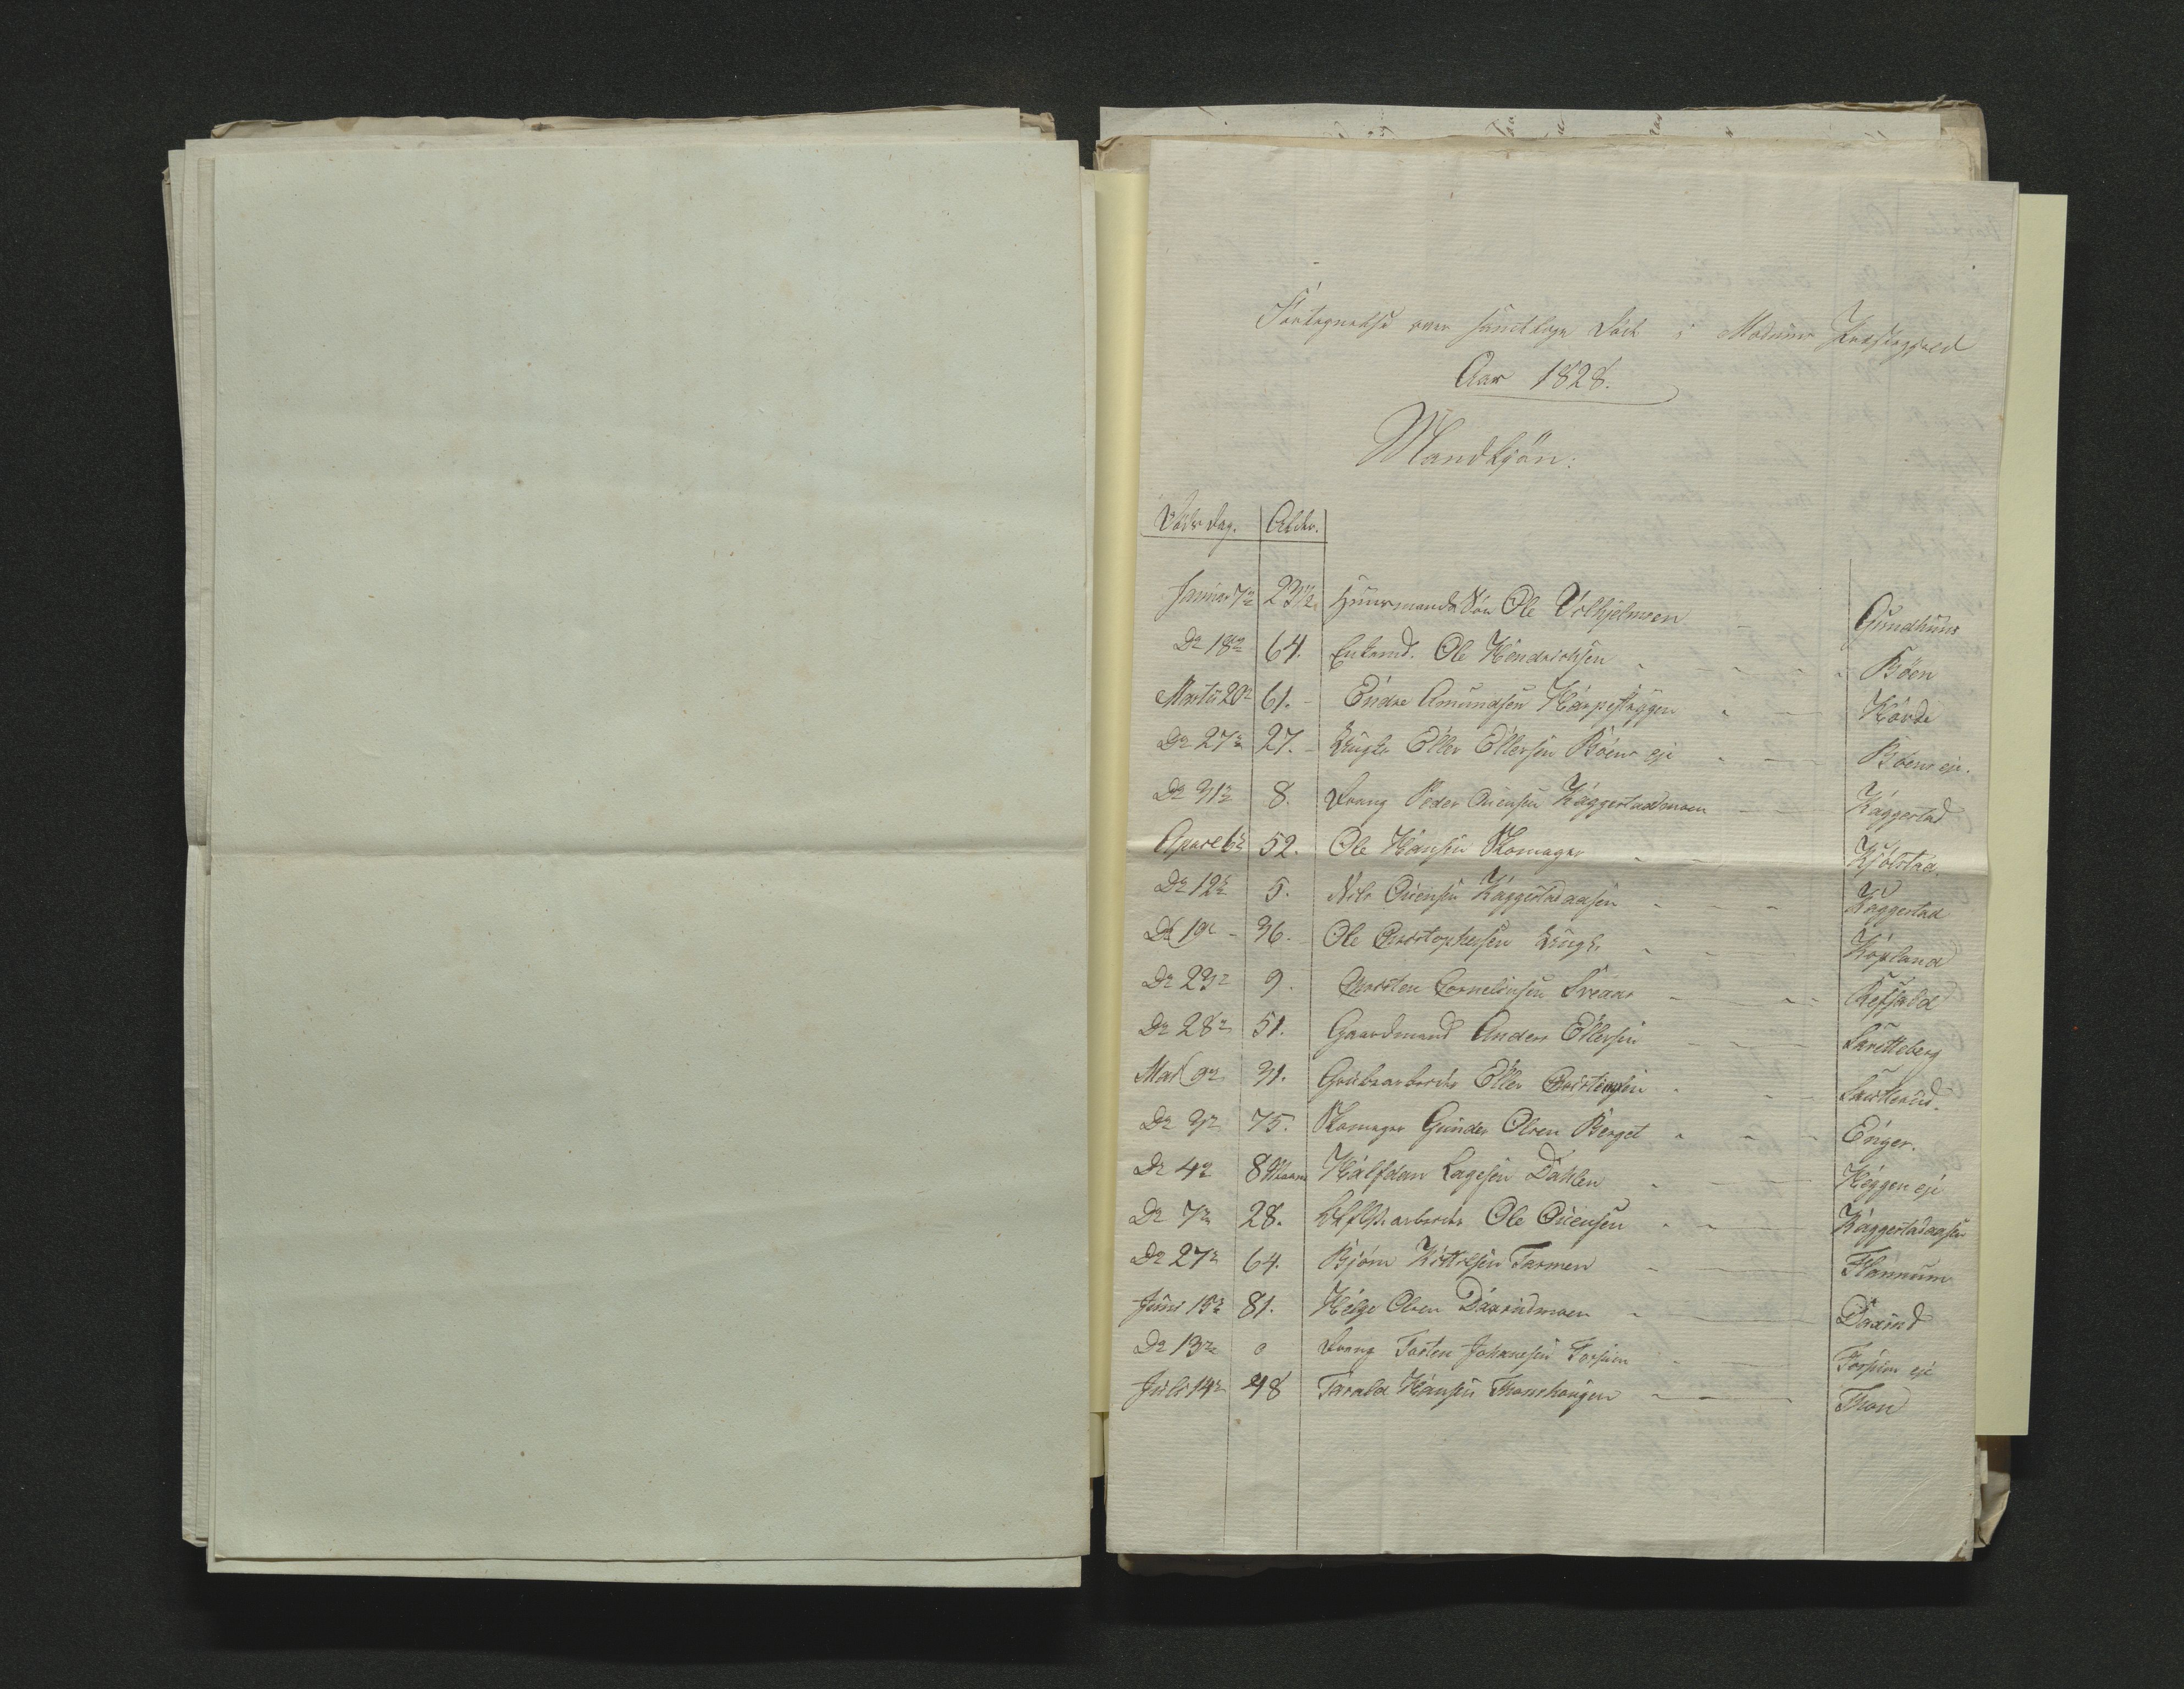 Fortegnelse over samtlige Døde i Modums Præstegjeld
Aar 1828.
Mandkjön:
Döds dag. Alder.
Januar 7de 23 1/2 Huusmands Sön Ole Vilhjelmsen Gundhuus
Do 18de 64. Enkemd. Ole Hendrichsen Böen
Martii 20de 61. Endre Amundsen Harpeskyggen Hovde
Do 27de 27. Ungkr. Eller Ellersen Böens eje Böens eje.
Do 31te 8. Dreng Peder Ovensen Kaggestadmoen Kaggestad
Aprel 6te 52. Ole Hansen Skomager Kjölstad.
Do 12te 5. Nils Ovensen Kaggestadaasen Kaggestad
Do 19de 36. Ole Christophersen Ungkr. Kopland
Do 23de 9. Christen Cornelinsen Sveaas
Do 28de 51. Gaardmand Anders Ellersen Skretteberg
Mai 9de 31. Grubearbeider Eller Christensen
Do 3de 75. Skomager Gunder Olsen Berget Enger.
Do 4de 8 Halfdan Lagesen Dahlen Heggen eje
Do 7de 28. arbeider Ole Ovensen Kaggestadaasen
Do 27de 64. Björn Kittilsen Tarmen Flannum
Juni 15de 81. Helge Olsen Daviudmoen Daviud
Do 13de 0 Dreng Tosten Johannesen Forsum Forsum eje
Juli 14de 48 Tarald Hansen Thonshougen Thon